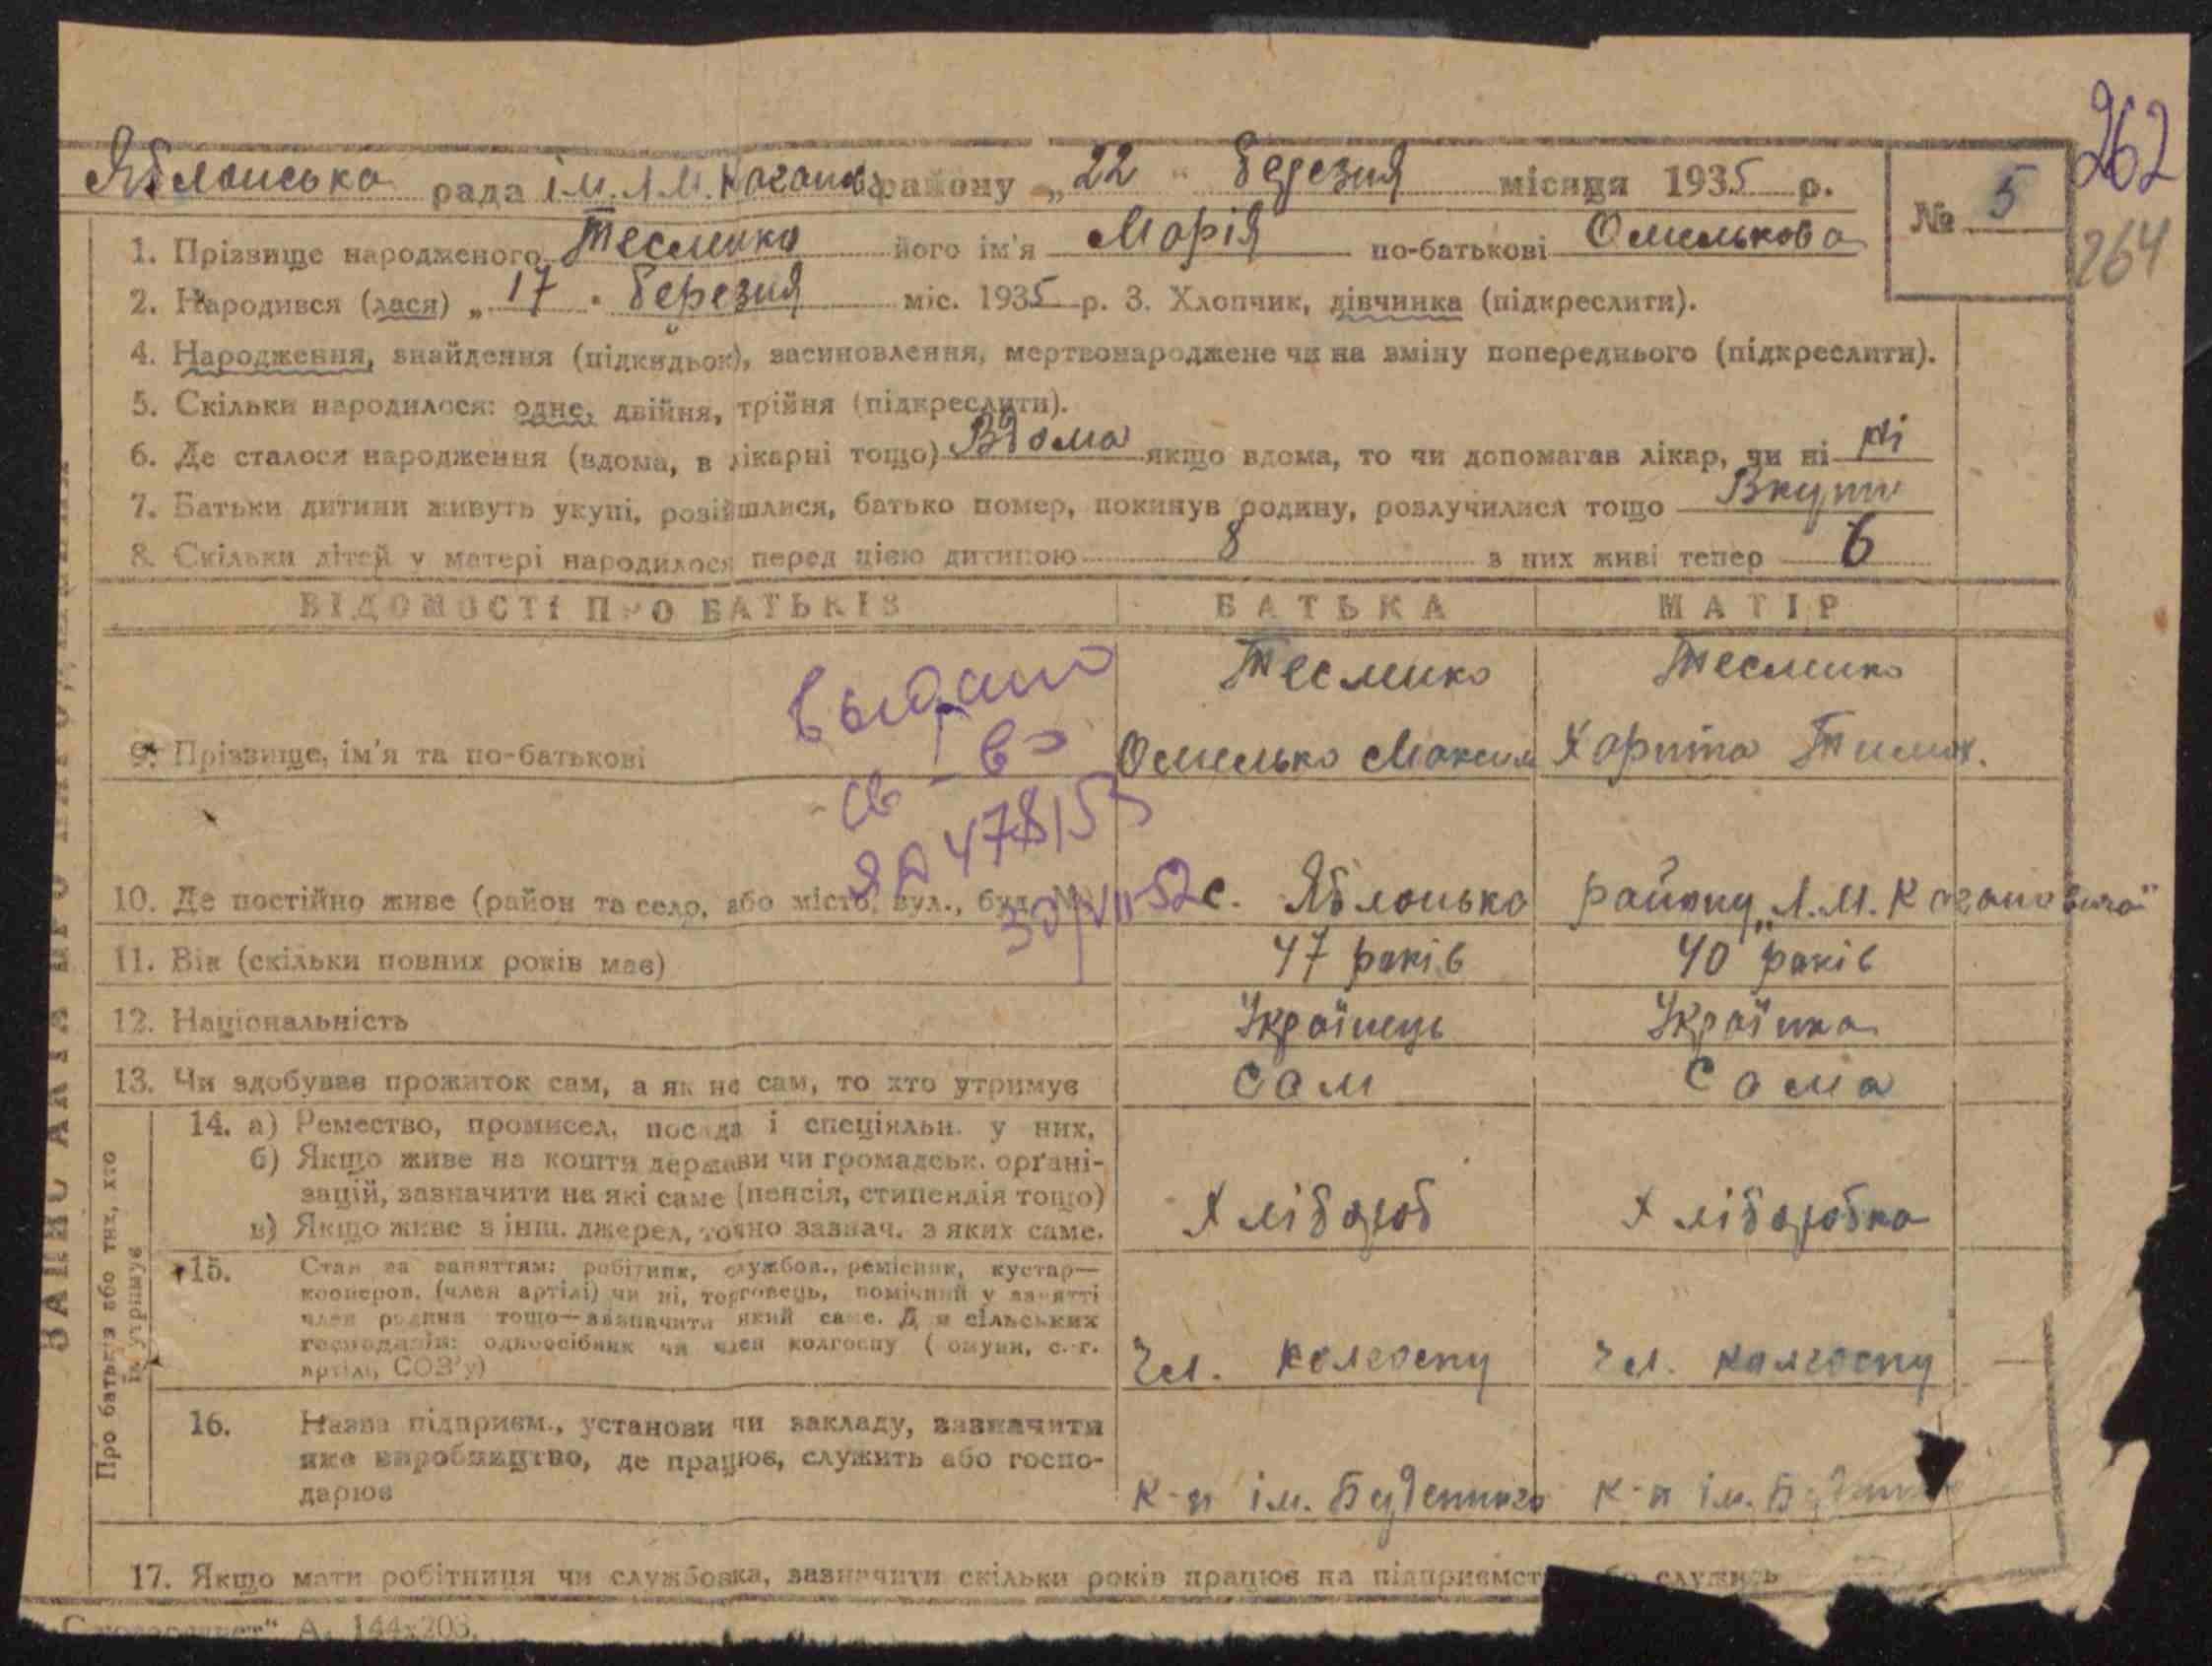 262
264
Яблонська рада ім. Л.М. Каганов. району „22" березня місяця 1935 р.
№ 5
1. Прізвище народженого Тесленко його ім'я Марія по-батькові Омелькова
2. Народився (лася) „17" березня міс. 1935 р. 3. Хлопчик, дівчинка (підкреслити).
4. Народження, знайдення (підкидьок), засиновлення, мертвонароджене чи на зміну попереднього (підкреслити).
5. Скільки народилося: одне, двійня, трійня (підкреслити).
6. Де сталося народження (вдома, в лікарні тощо) Вдома якщо вдома, то чи допомагав лікар, чи ні ні
7. Батьки дитини живуть укупі, розійшлися, батько помер, покинув родину, розлучилися тощо Вкупи
8. Скільки дітей у матері народилося перед цією дитиною 8 з них живі тепер 6
ВІДОМОСТІ ПРО БАТЬКІВ БАТЬКА МАТІР
Выдано
св-во
ЯА 478155
30/VII-52
9. Прізвище, ім'я та по-батькові Тесленко Омелько Максим Тесленко Харита Тимох.
10. Де постійно живе (район та село, або місто, вул., буд. №) с. Яблонька району „Л.М. Кагановича"
11. Вік (скільки повних років має) 47 років 40 років
12. Національність Українець Українка
13. Чи здобуває прожиток сам, а як не сам, то хто утримує Сам Сама
Про батьків або тих, хто їх утримує
14. а) Ремество, промисел, посада і спеціяльн. у них,
б) Якщо живе на кошти держави чи громадськ. органі-
зацій, зазначити на які саме (пенсія, стипендія тощо) Хлібороб Хліборобка
в) Якщо живе з інш. джерел, точно зазнач. з яких саме.
15. Стан за заняттям: робітник, службов., ремісник, кустар—
кооперов. (член артілі) чи ні, торговець, помічний у занятті
член родини тощо—зазначити який саме. Для сільських
господарів: одноосібник чи член колгоспу (комуни, с.-г.
артілі, СОЗ'у) Чл. колгоспу Чл. колгоспу
16. Назва підприєм., установи чи закладу, зазначити
яке виробництво, де працює, служить або госпо-
дарює К-п ім. Буденного К-п ім.
17. Якщо мати робітниця чи службовка, зазначити скільки років працює на підприємст служить
А. 144х203.
ЗАПИС АКТА ПРО